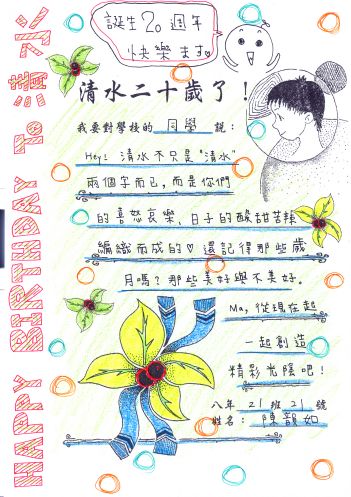 誕生20週年
快樂ますo
清水二十歲了!
我要對學校的 同學 說:
Hey! 清水不只是"清水"
兩個字而已,而是你們
的喜怒哀樂、日子的酸甜苦辣
編織而成的♡ 還記得那些歲
月嗎?那些美好與不美好。
Ma,從現在起
一起創造
精彩光陰吧!
八年 21 班 21 號
姓名: 陳韻如
HAPPY BIRTHDAY To 清水